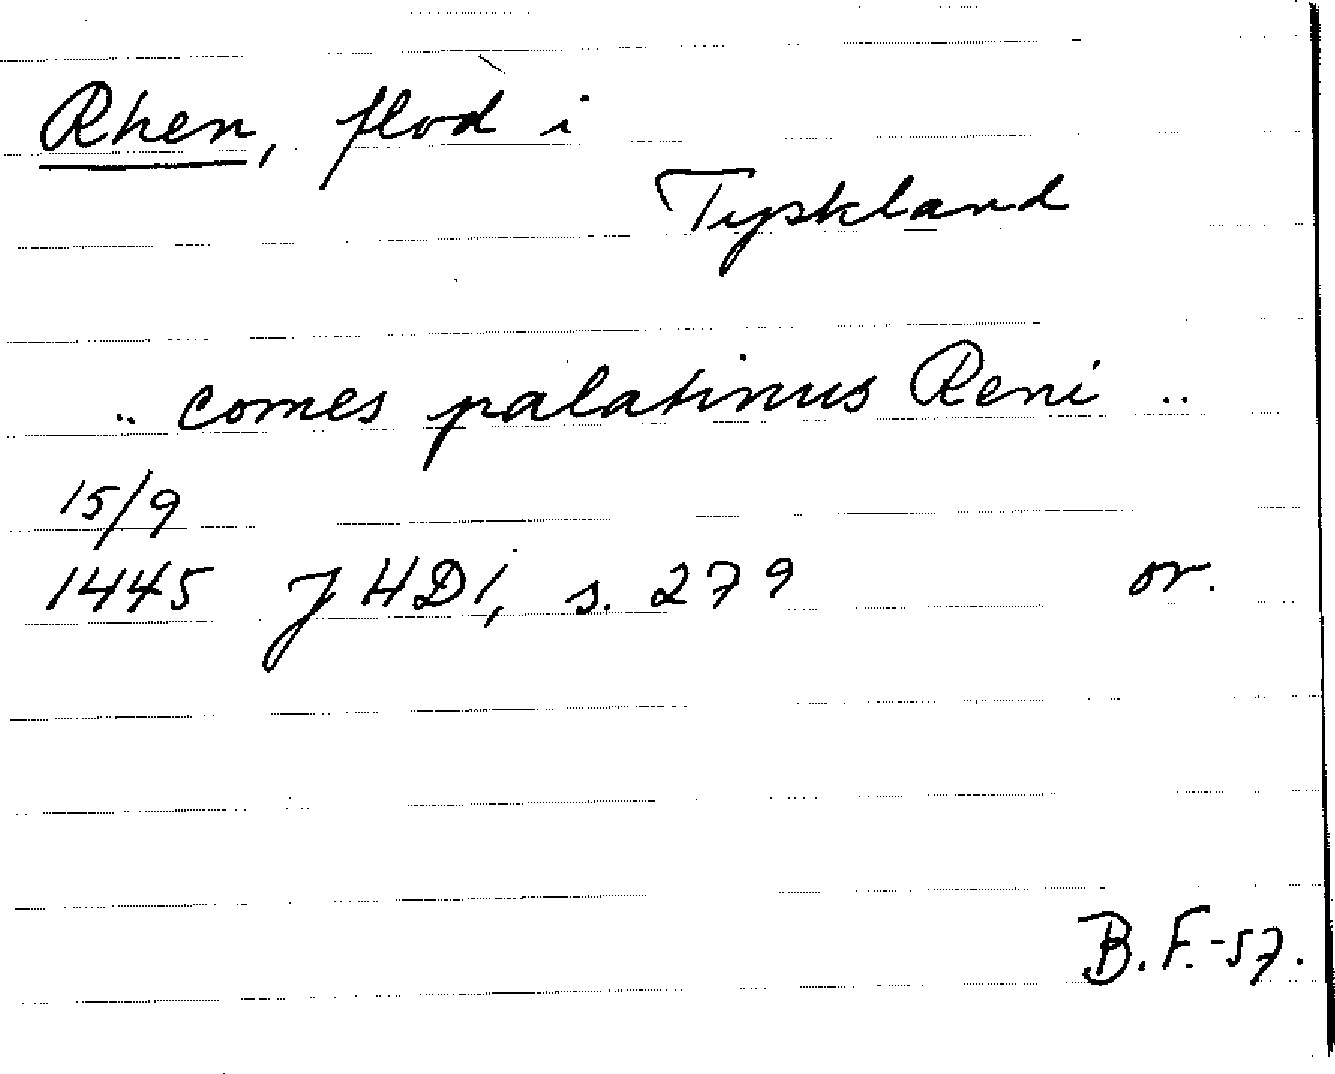 Rhen, flod i
Tyskland
.. comes palatinus Reni ..
15/9
1445 JHD1, s. 279 or.
B.F.-57.